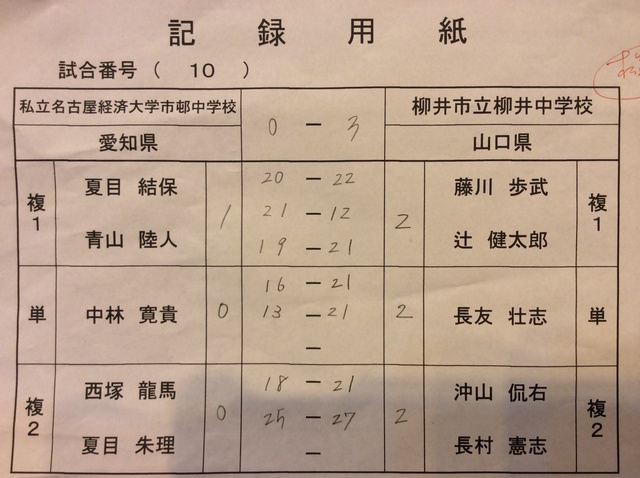 記録用紙
試合番号 ( 10 )
私立名古屋経済大学市邨中学校 0 — 3 柳井市立柳井中学校
愛知県 山口県
複1 夏目 結保 1 20 — 22 2 藤川 歩武 複1
21 — 12
青山 陸人 19 — 21 辻 健太郎
単 中林 寛貴 0 16 — 21 2 長友 壮志 単
13 — 21
—
複2 西塚 龍馬 0 18 — 21 2 沖山 侃右 複2
25 — 27
夏目 朱理 — 長村 憲志